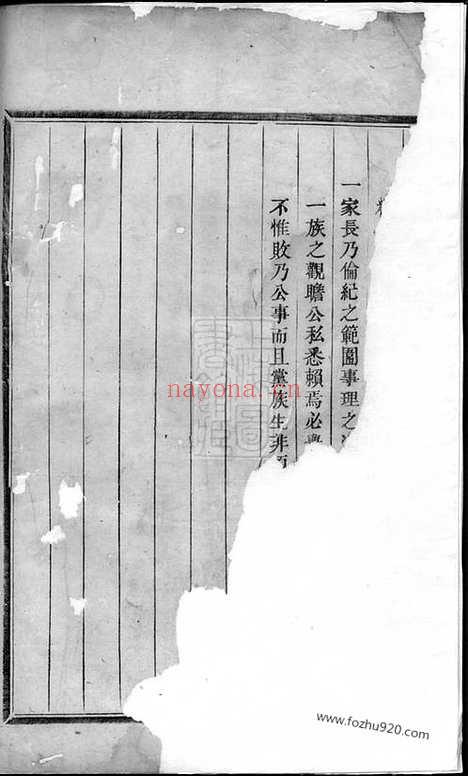 一家長乃倫紀之範圍事理之
一族之觀瞻公私悉賴焉必
不惟敗乃公事而且黨族生非
nayona.cn
www.fozhu920.com